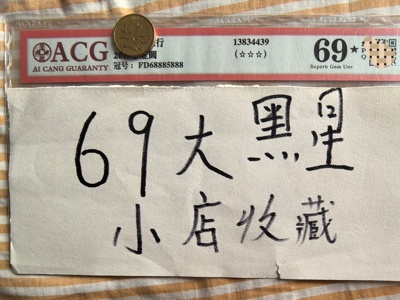 ACG
AI CANG GUARANTY
行
冠号: FD68885888
13834439
(☆☆☆)
69★
Superb Gem Unc
69大黑星
小店收藏